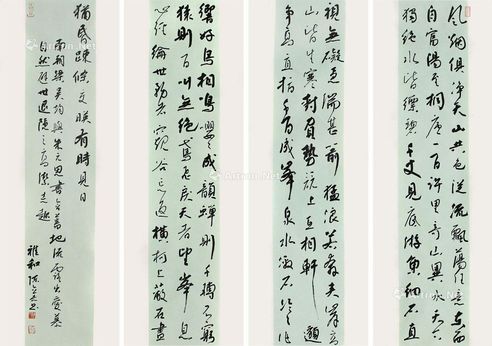 風烟俱净天山共色從流飄蕩任意東西
自富陽至桐廬一百許里奇山異水天下
獨絕水皆縹碧千丈見底游魚細石直
視無礙急湍甚箭猛浪若奔夾岸高
山皆生寒樹負勢競上互相軒邈
爭高直指千百成峯泉水激石泠泠作
響好鳥相鳴嚶嚶成韻蟬則千轉不窮
猿則百叫無絕鳶飛戾天者望峯息
心經綸世務者窺谷忘返橫柯上蔽在晝
猶昏疎條交映有時見日
南朝梁吳均與朱元思書 地流露出愛慕
自然厭世退隱之高潔志趣
雅和 陳